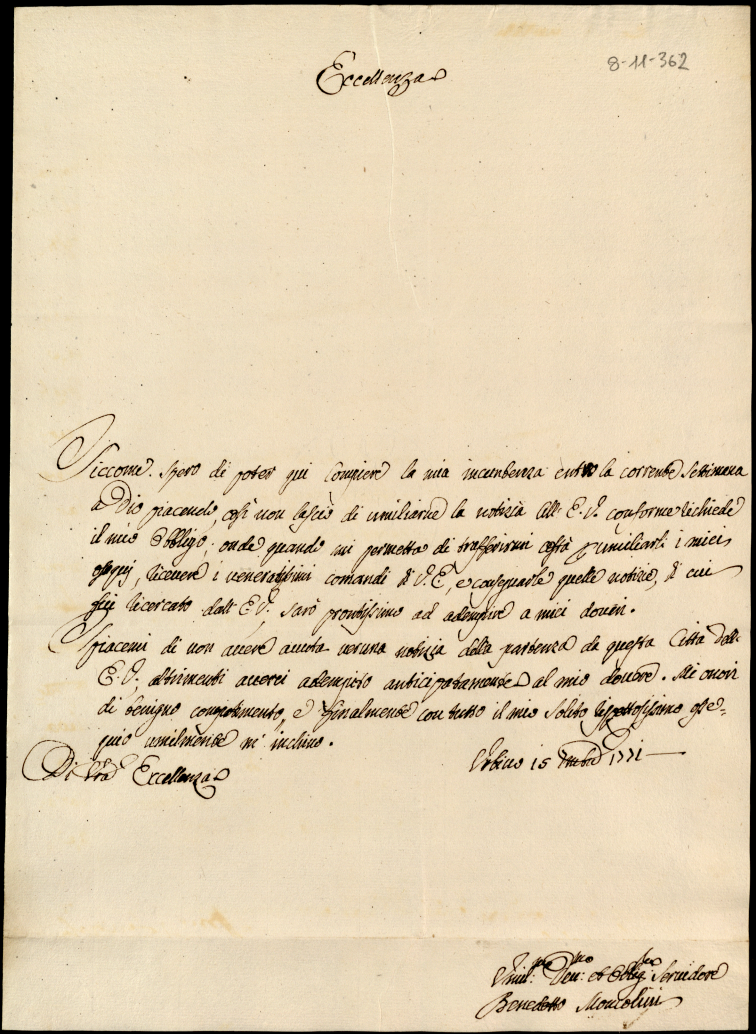 8-11-362
Eccellenza
Siccome spero di poter qui compiere la mia incumbenza entro la corrente settimana
a Dio piacendo, così non lascio di umiliarne la notizia all' E. V. conforme richiede
il mio obbligo; onde quando mi permetta di trasferirmi costà p umiliarli i miei
ossequj, ricevere i veneratissimi comandi di V. E., e consegnarle quelle notizie, di cui
fui ricercato dall' E. V., sarò prontissimo ad adempire a miei doveri.
Spiacemi di non avere avuta veruna notizia della partenza da questa Città dell'
E. V. altrimenti averei adempito anticipatamente al mio dovere. Mi onori
di benigno compatimento, e finalmente con tutto il mio solito rispettosissimo osse=
quio umilmente m' inchino.
Di Vrã Eccellenza
Urbino 15 1771
Umil.mo Dev.mo et Oblig. Servidore
Benedetto